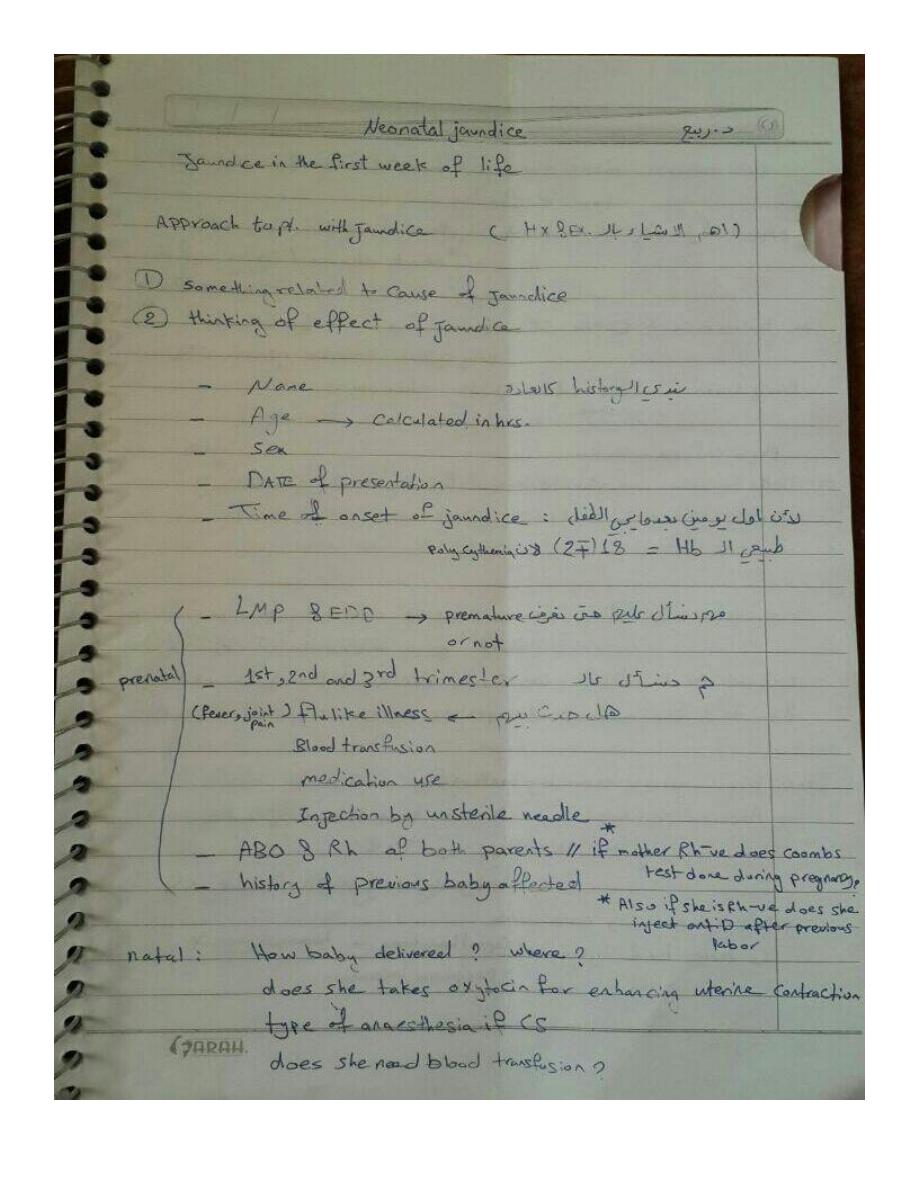 Neonatal jaundice د. ربيع
Jaundice in the first week of life
Approach to pt. with Jaundice (اهم الاشياء بالـ Hx & Ex.)
① Something related to cause of Jaundice
② thinking of effect of Jaundice
- Name نبدي الـ history كالعادة
- Age → calculated in hrs.
- Sex
- DATE of presentation
- Time of onset of jaundice : لأن اول يومين بعد ما يجي الطفل
طبيعي الـ Hb = 18 (2∓) لان polycythemia
prenatal
- LMP & EDD → premature مهم نسأل عليهم حتى نعرف
or not
- 1st, 2nd and 3rd trimester ثم نسأل عالـ
(fever, joint pain) Flu like illness ← هل حدث بيهم
Blood transfusion
medication use
Injection by unsterile needle
- ABO & Rh of both parents // * if mother Rh-ve does coombs
test done during pregnancy?
- history of previous baby affected
* Also if she is Rh-ve does she
inject anti D after previous
labor
natal : How baby delivered ? where ?
does she takes oxytocin for enhancing uterine contraction
type of anaesthesia if CS
SARAH.
does she need blood transfusion ?